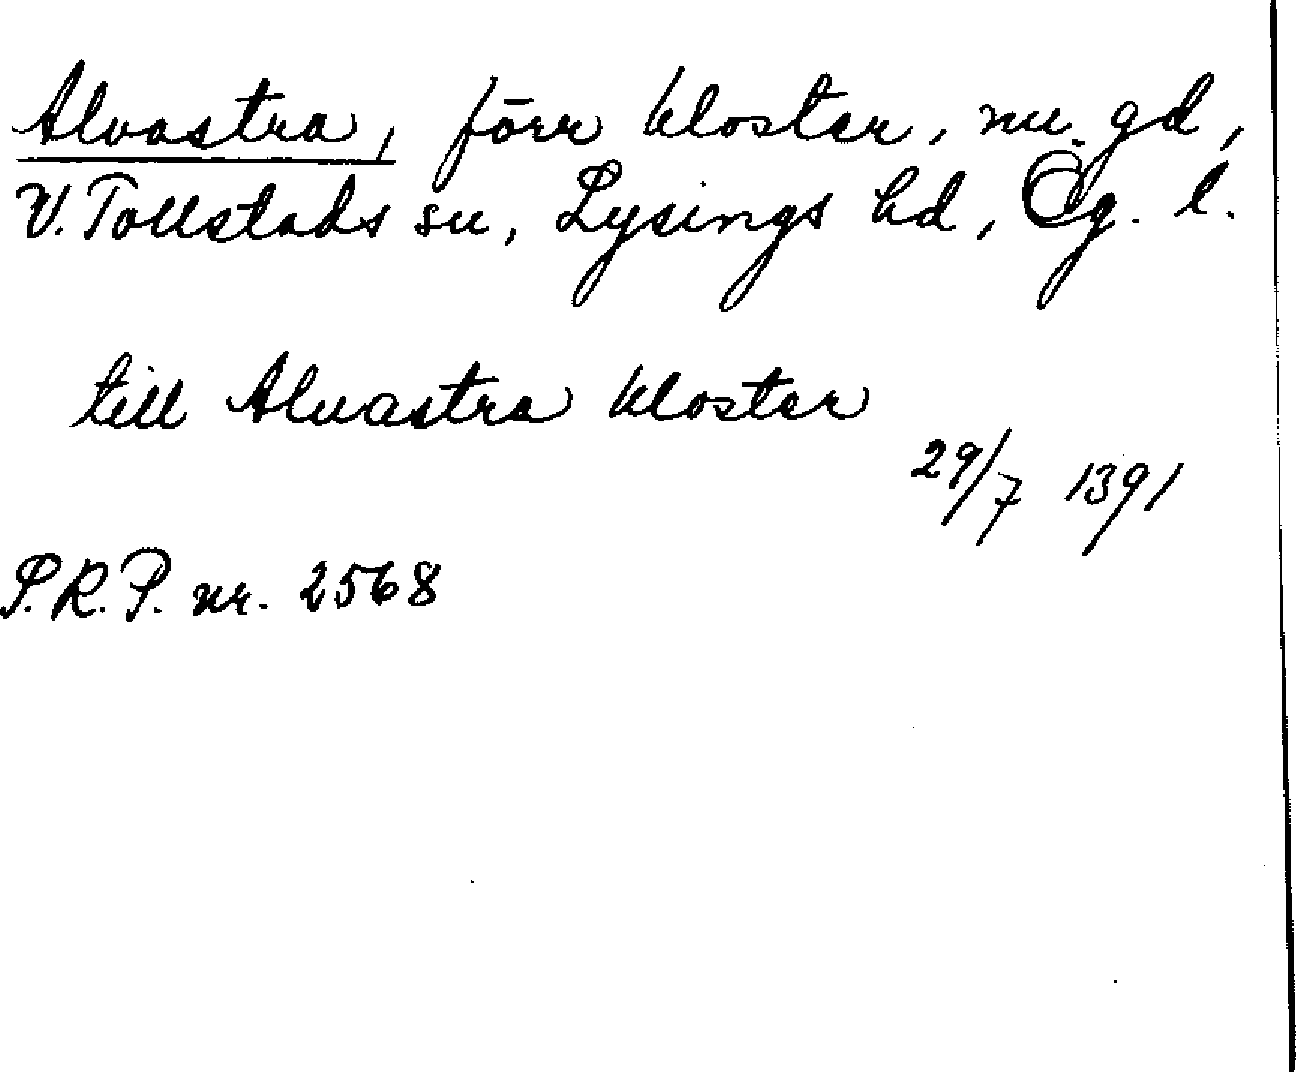 Alvastra, förr kloster, nu gd,
V. Tollstads sn, Lysings hd, Ög. l.
till Alvastra kloster
29/7 1391
P.R.P. nr. 2568